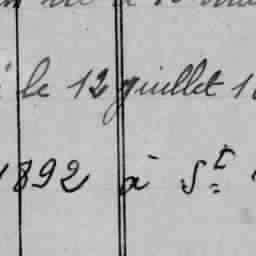 le 12 juillet 18
1892 à St